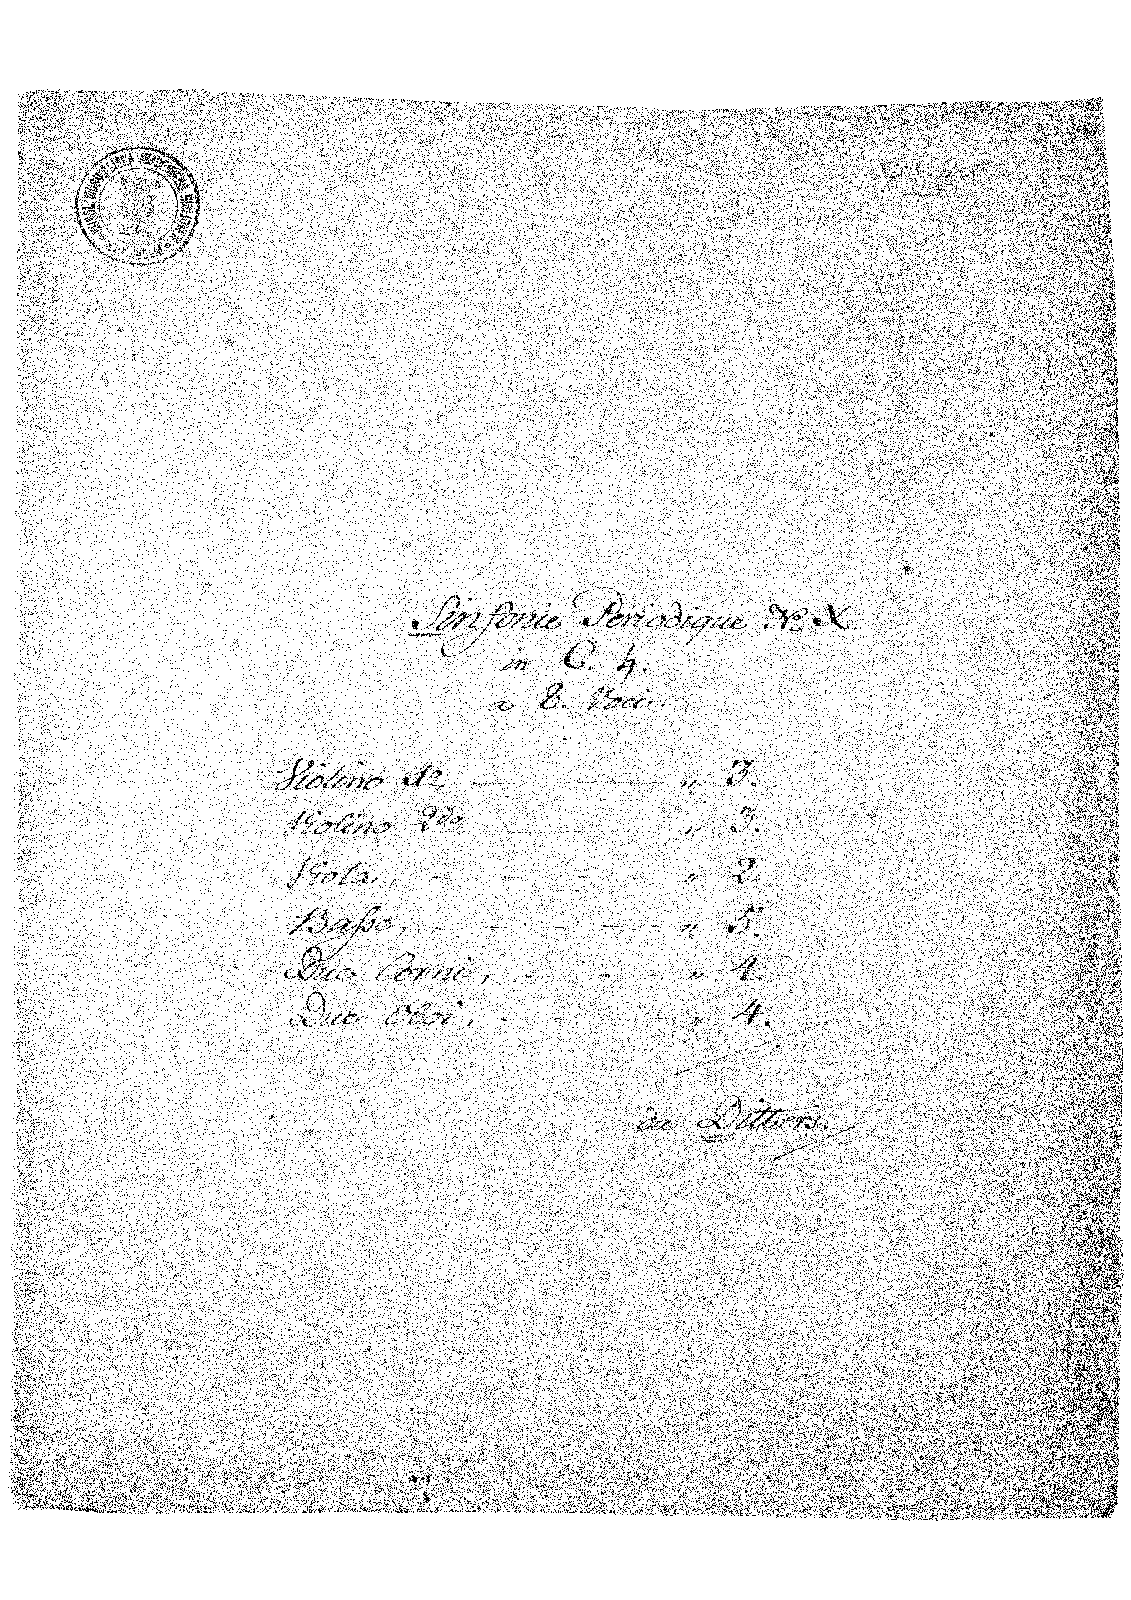 Sinfonie Periodique No. X
in C. 4.
a 8. Voci.
Violino 1o " 3.
Violino 2do " 3.
Viola, " 2.
Basso, " 5.
Due Corni, " 4.
Due Oboi, " 4.
da Ditters.